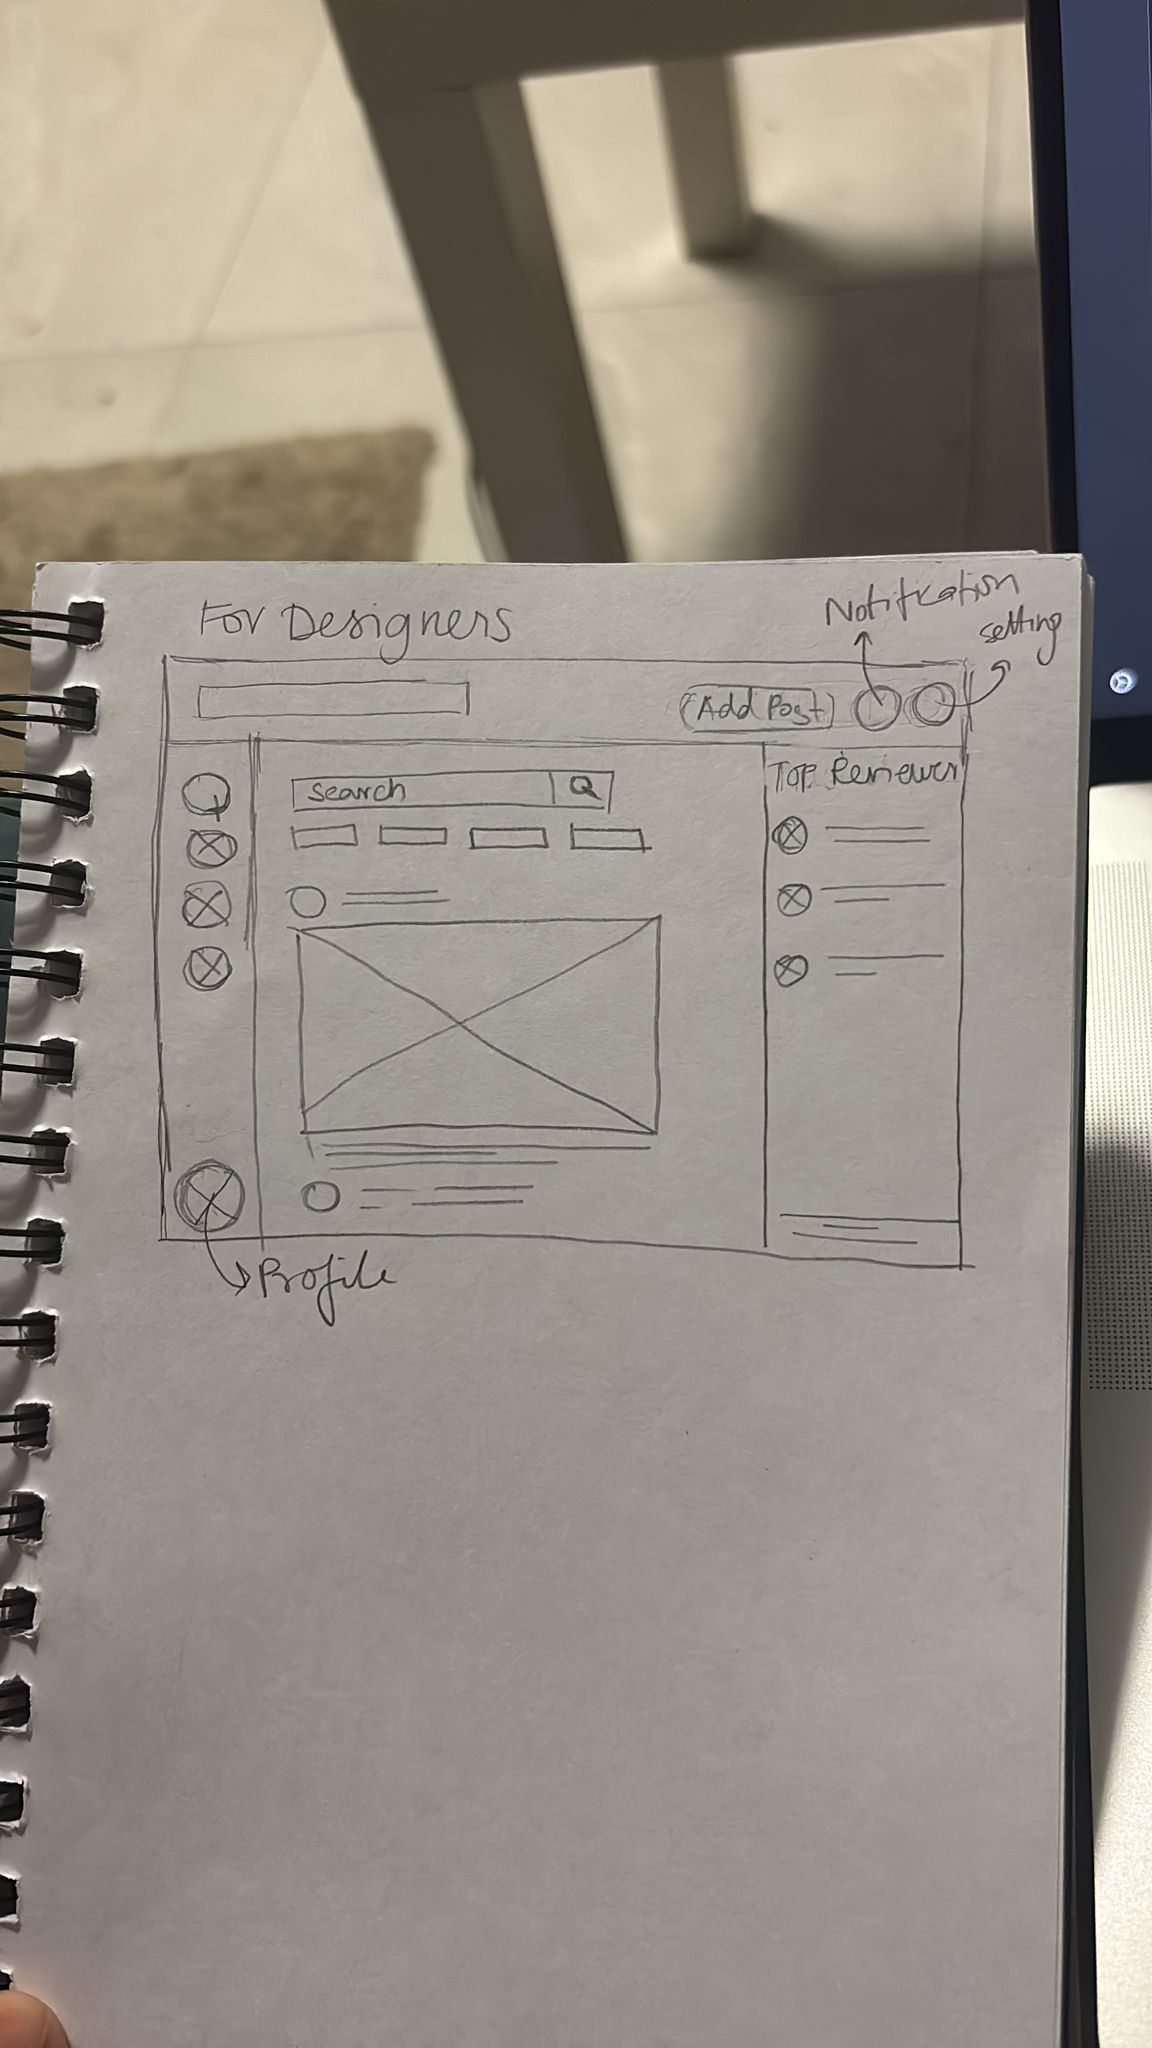 For Designers
Notification
setting
Add Post
Search
Top Reviewer
Profile